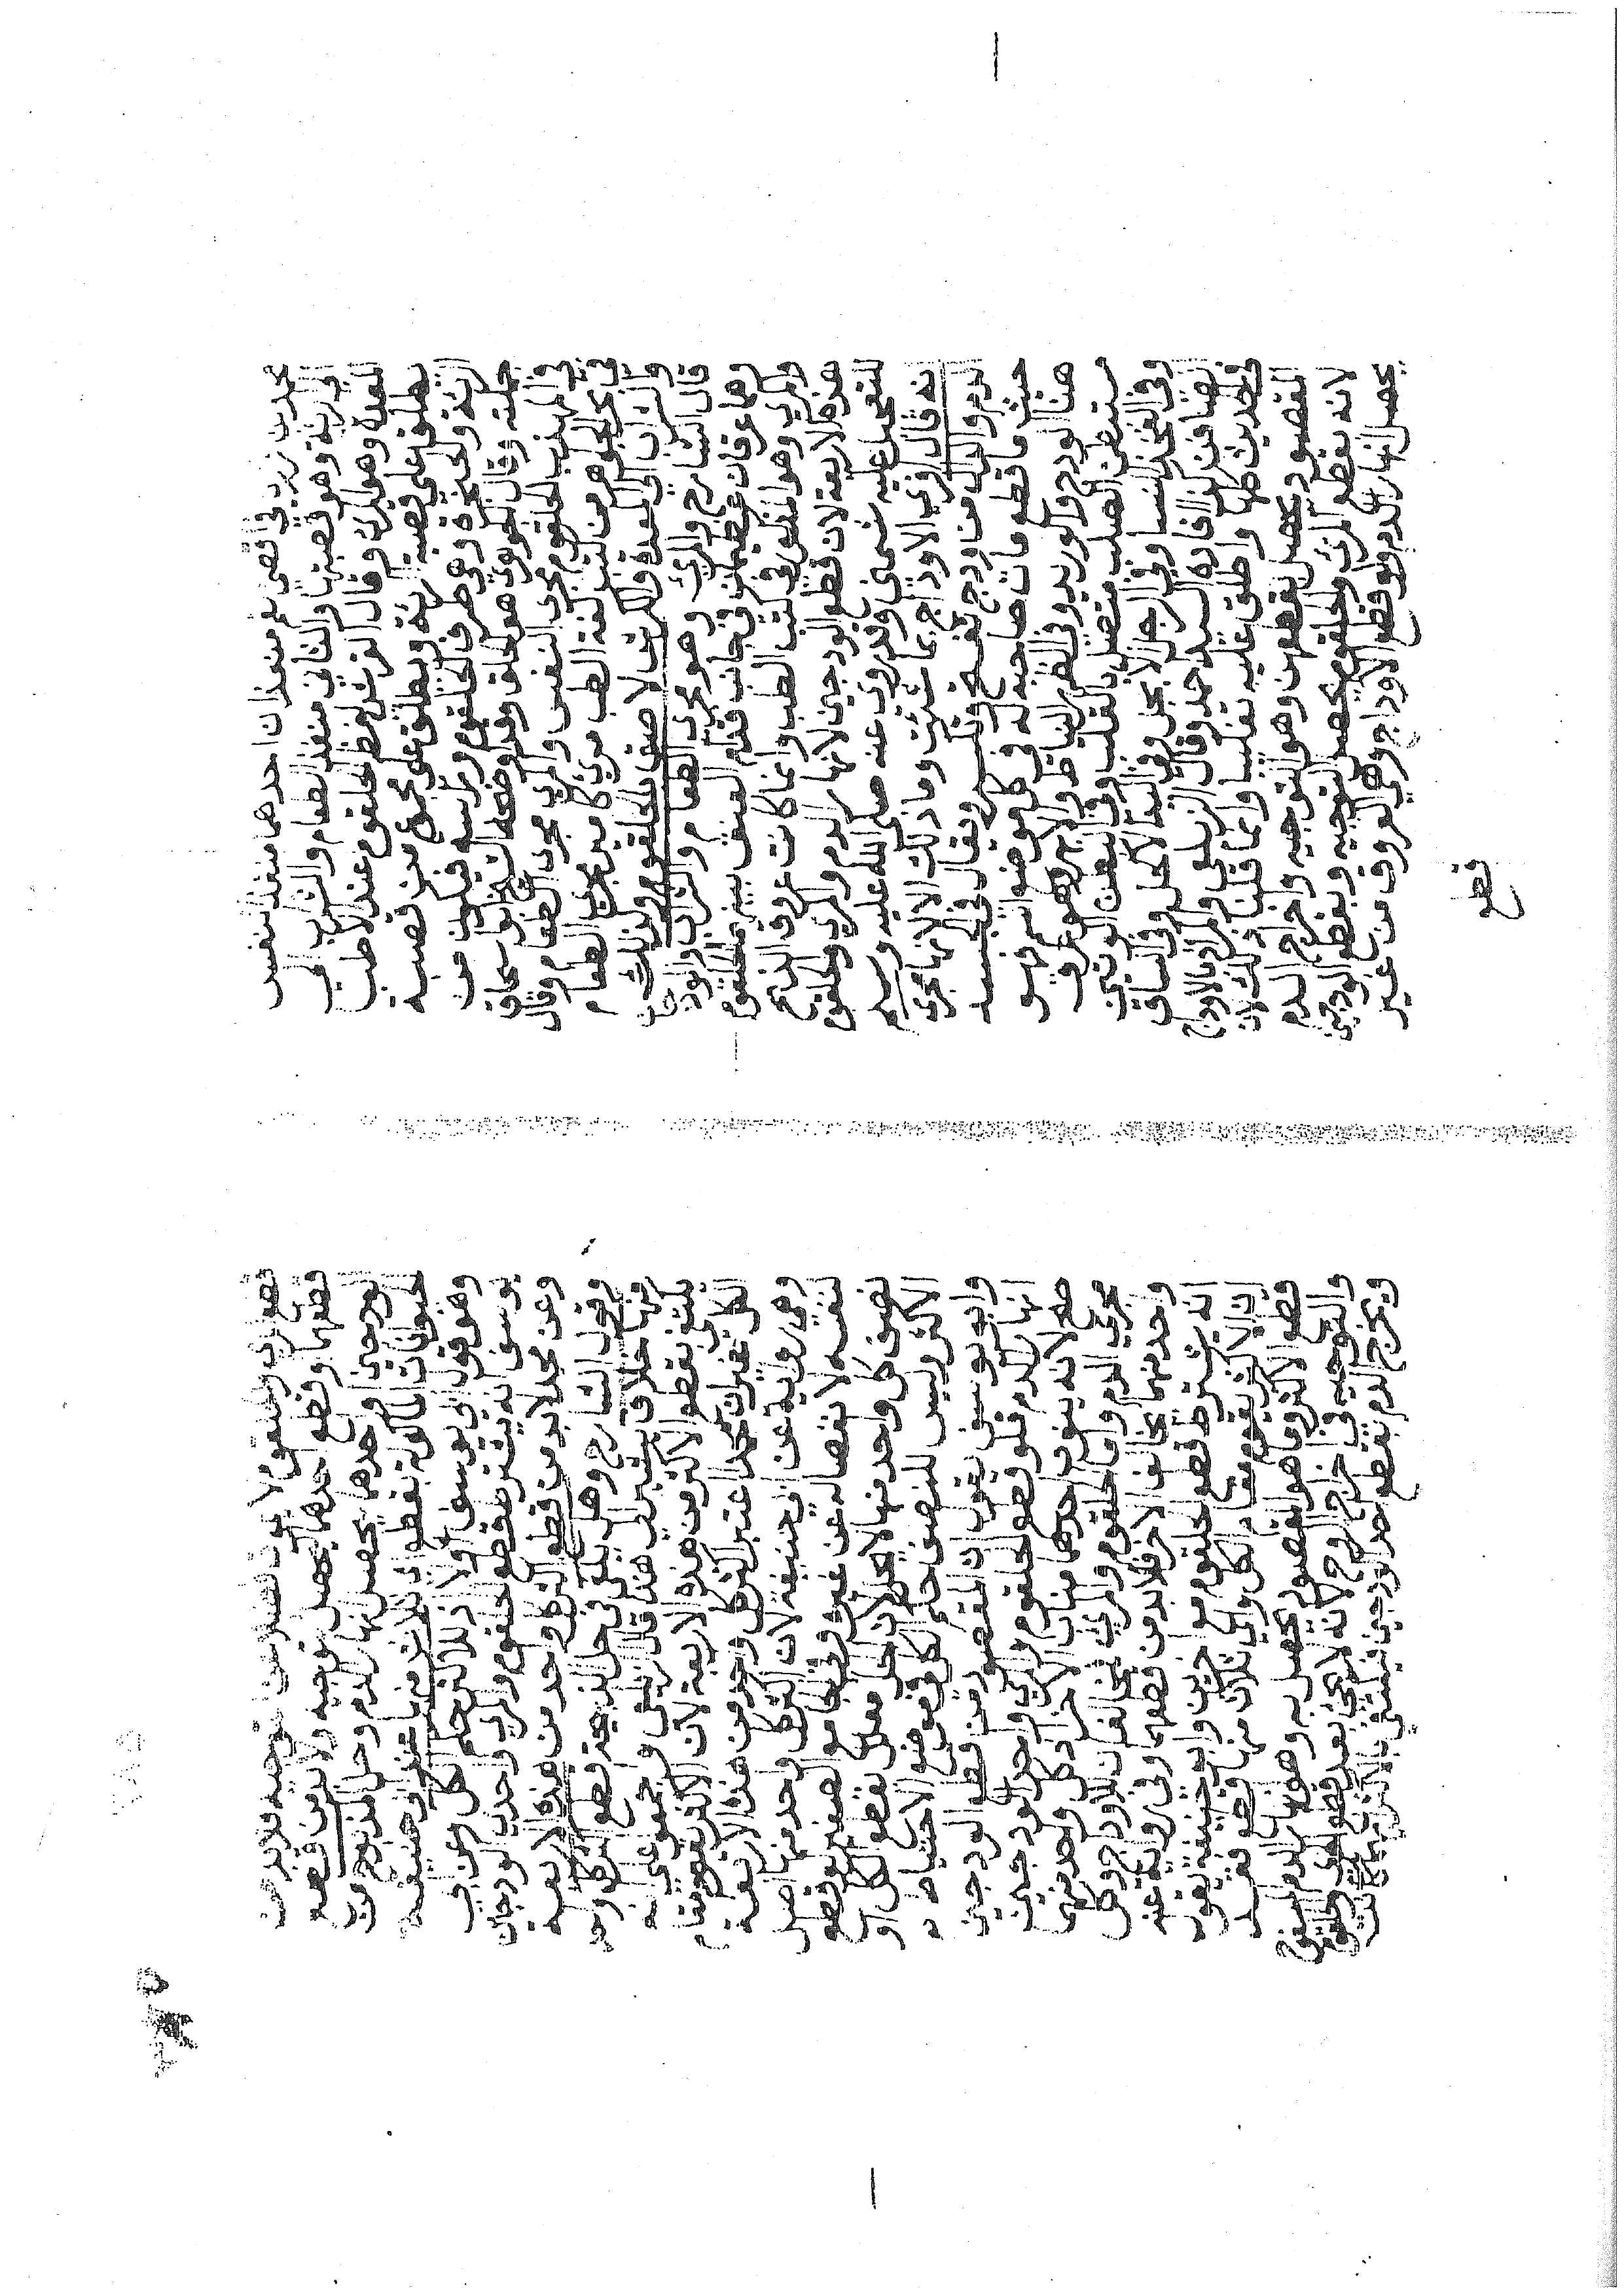 محمد بن زيد في اقصى فم منفذان احدهما منفذ النفس
الى الرية وهو قصبتها والثاني منفذ الطعام والشراب الى
المعدة وهو المري وقال القرشي لفظ الحلقوم عند الاطباء
يطلق على قصبة الرية ويطلق على مجموع من قصبة
الرية والحنجرة وهي طرف الحلقوم ورأسه فيكون من
جملته وقال هو الحلق وقد وضحه الشيخ
في المهذب الحلقوم مجرى النفس والمري مجرى الطعام وقال
في الجواهر من كتب لغة الطب مري كامير مجرى الطعام
والشراب الى المعدة والكرش لاصق بالحلقوم ولذلك
قال الشارح والمري وهو مجرى الطعام والشراب والودجان
وهما عرقان عظيمان في جانب قدام العنق بينهما الحلقوم
والمري وهو المذكور في كتب الطب وانما كانت عروق الذبح
هذه الاربعة لان قطع الودجين لانهار الدم والمري والحلقوم
للتعجيل عليه شيئين وقد روي عنه صلى الله عليه وسلم
انه قال افري الاوداج بما شئت وما ذلك الا لانها مجرى
الدم والودك من اودج بفتح وكسر ويقال في الجسد
حيث ما قطع مات صاحبه له في كل موضع اسم فهو
هنا الودج والوريد وفي الظهر النياط والابهر وهو عرق
مستبطن الصلب متصل بالقلب وفي البطن الوتين
وفي الفخذ النسا وفي الرجل الابجل وفي اليد الاكحل وفي الساق
الصافن كذا افاده السيد احمد وقال الزيلعي والمراد بالاوداج
الودجين والحلقوم والمري واطلق عليه تغليبا وانما قلنا ذلك لان
المقصود يحصل بقطعهن وهو التوجيه واخراج الدم
لانه بقطع المري والحلقوم يحصل التوجيه وبقطع الودجين
يحصل انهار الدم ولو قطع الاوداج وهي العروق من غير
قطع
قطع المري والحلقوم لا يموت فضلا عن التوجيه فلا بد من
قطعهما وقطع احدهما يحصل التوجيه ولا بد من قطعه
الودجين او احدهما ليحصل انهار الدم وحل المذبوح من
الحيوانات المأكولة بقطع اي ثلاث منها عند ابي حنيفة
وهو قول ابي يوسف اولا اذ للاكثر حكم الكل وعن ابي
يوسف انه يشترط قطع الحلقوم والمري واحد الودجين
وعن محمد لا بد من قطع اكثر كل واحد من هذه الاربعة
وقول الشارح وهل يكفي في حل الذبيحة قطع اكثر كل واحد
منها خلاف يشير الى هذا قال الزيلعي واجمعوا على انه
يكتفى بقطع الاكثر من هذه الاربعة لان الاكثر يقوم مقام
الكل غير ان محمدا اعتبر اكثر كل واحد من هذه الاربعة
وهي رواية عن ابي حنيفة لان كل واحد منها اصل
بنفسه لانفصاله عن غيره وفي الجامع الصغير بقطع
نصف كل واحد منها لا يحل لان الحل معلق بقطع الكل او
الاكثر وليس للنصف حكم الكل في موضع الاحتياط
وابو يوسف يقول ان المقصود من قطع الودجين
انهار الدم فلو قطع الحلقوم والمري واحد الودجين
حل لانه ينوب احدهما مناب الاخر اذ كل واحد منهما
مجرى الدم واما الحلقوم والمري فمخالفان للاوداج وكل
واحد منهما مخالف للاخر فلا بد من قطعهما وفي رواية عنه
انه يشترط قطع الحلقوم مع اخرين وابو حنيفة يقول
ان الاكثر يقوم مقام الكل واي ثلاث منها قطع فقد
قطع الاكثر وما هو المقصود يحصل به وهو انهار الدم المسفوح
والتوجيه في اخراج الروح لانه لا يحيا بعد قطع المري والحلقوم
ويخرج الدم بقطع احد الودجين فيكتفى به